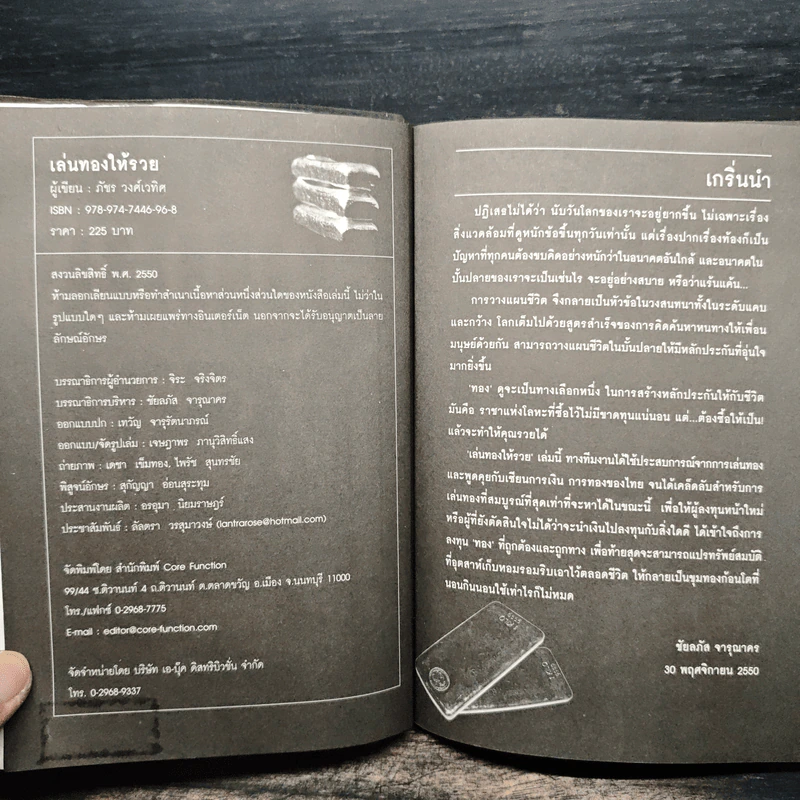 เล่นทองให้รวย
ผู้เขียน : ภัชร วงศ์เวทิศ
ISBN : 978-974-7446-96-8
ราคา : 225 บาท
สงวนลิขสิทธิ์ พ.ศ. 2550
ห้ามลอกเลียนแบบหรือทำสำเนาเนื้อหาส่วนหนึ่งส่วนใดของหนังสือเล่มนี้ ไม่ว่าใน
รูปแบบใดๆ และห้ามเผยแพร่ทางอินเตอร์เน็ต นอกจากจะได้รับอนุญาตเป็นลาย
ลักษณ์อักษร
บรรณาธิการผู้อำนวยการ : จิระ จริงจิตร
บรรณาธิการบริหาร : ชัยลภัส จารุณาคร
ออกแบบปก : เทวัญ จารุรัตนาภรณ์
ออกแบบ/จัดรูปเล่ม : เจษฎาพร ภานุวิสิทธิ์แสง
ถ่ายภาพ : เดชา เข็มทอง, ไพรัช สุนทรชัย
พิสูจน์อักษร : สุกัญญา อ่อนสุระทุม
ประสานงานผลิต : อรอุมา นิยมราษฎร์
ประชาสัมพันธ์ : ลัลตรา วรสุมาวงษ์ (lantrarose@hotmail.com)
จัดพิมพ์โดย สำนักพิมพ์ Core Function
99/44 ซ.ติวานนท์ 4 ถ.ติวานนท์ ต.ตลาดขวัญ อ.เมือง จ.นนทบุรี 11000
โทร./แฟกซ์ 0-2968-7775
E-mail : editor@core-function.com
จัดจำหน่ายโดย บริษัท เอ-บุ๊ค ดิสทริบิวชั่น จำกัด
โทร. 0-2968-9337
เกริ่นนำ
ปฏิเสธไม่ได้ว่า นับวันโลกของเราจะอยู่ยากขึ้น ไม่เฉพาะเรื่อง
สิ่งแวดล้อมที่ดูหนักข้อขึ้นทุกวันเท่านั้น แต่เรื่องปากเรื่องท้องก็เป็น
ปัญหาที่ทุกคนต้องขบคิดอย่างหนักว่าในอนาคตอันใกล้ และอนาคตใน
บั้นปลายของเราจะเป็นเช่นไร จะอยู่อย่างสบาย หรือว่าแร้นแค้น...
การวางแผนชีวิต จึงกลายเป็นหัวข้อในวงสนทนาทั้งในระดับแคบ
และกว้าง โลกเต็มไปด้วยสูตรสำเร็จของการคิดค้นหาหนทางให้เพื่อน
มนุษย์ด้วยกัน สามารถวางแผนชีวิตในบั้นปลายให้มีหลักประกันที่อุ่นใจ
มากยิ่งขึ้น
'ทอง' ดูจะเป็นทางเลือกหนึ่ง ในการสร้างหลักประกันให้กับชีวิต
มันคือ ราชาแห่งโลหะที่ซื้อไว้ไม่มีขาดทุนแน่นอน แต่...ต้องซื้อให้เป็น!
แล้วจะทำให้คุณรวยได้
'เล่นทองให้รวย' เล่มนี้ ทางทีมงานได้ใช้ประสบการณ์จากการเล่นทอง
และพูดคุยกับเซียนการเงิน การทองของไทย จนได้เคล็ดลับสำหรับการ
เล่นทองที่สมบูรณ์ที่สุดเท่าที่จะหาได้ในขณะนี้ เพื่อให้ผู้ลงทุนหน้าใหม่
หรือผู้ที่ยังตัดสินใจไม่ได้ว่าจะนำเงินไปลงทุนกับสิ่งใดดี ได้เข้าใจถึงการ
ลงทุน 'ทอง' ที่ถูกต้องและถูกทาง เพื่อท้ายสุดจะสามารถแปรทรัพย์สมบัติ
ที่อุตสาห์เก็บหอมรอมริบเอาไว้ตลอดชีวิต ให้กลายเป็นขุมทองก้อนโตที่
นอนกินนอนใช้เท่าไรก็ไม่หมด
ชัยลภัส จารุณาคร
30 พฤศจิกายน 2550